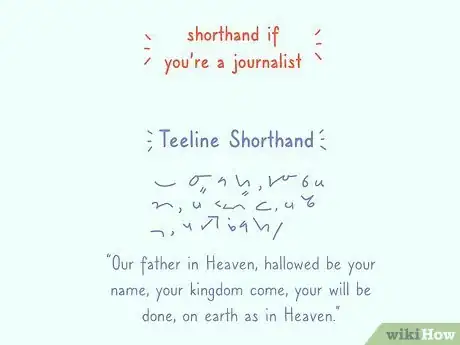 shorthand if
you're a journalist
Teeline Shorthand
"Our father in Heaven, hallowed be your
name, your kingdom come, your will be
done, on earth as in Heaven."
wikiHow